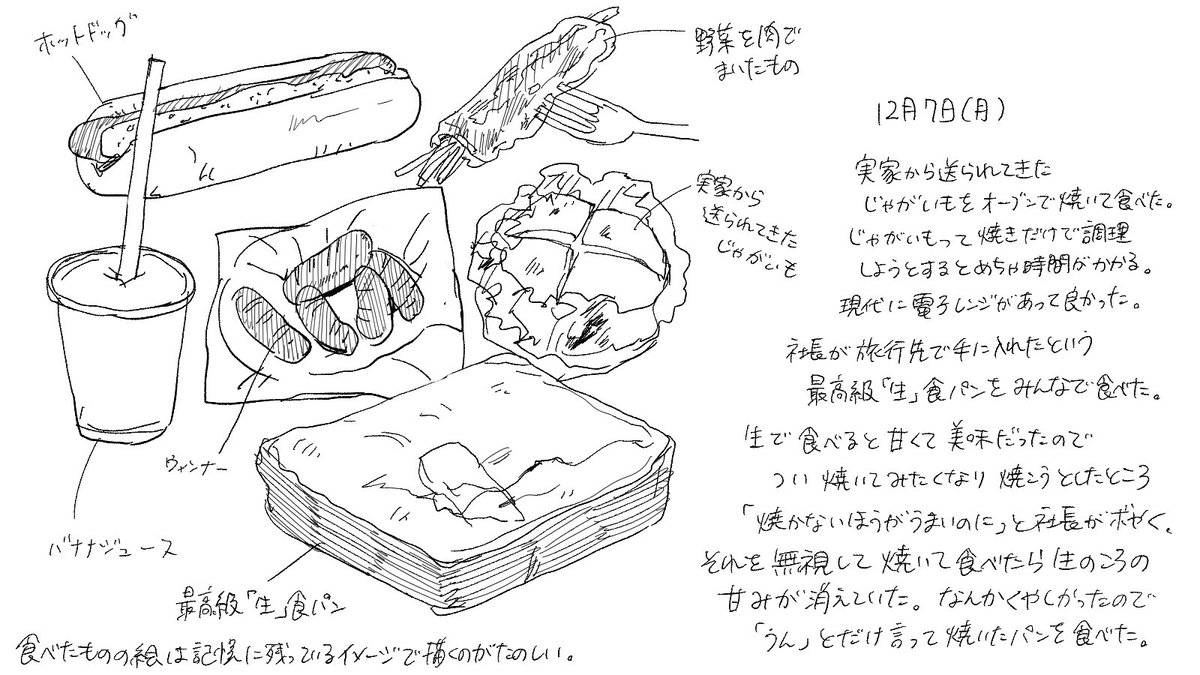 ホットドッグ
野菜を肉で
まいたもの
実家から
送られてきた
じゃがいも
ウィンナー
バナナジュース
最高級「生」食パン
食べたものの絵は記憶に残っているイメージで描くのがたのしい。
12月7日(月)
実家から送られてきた
じゃがいもをオーブンで焼いて食べた。
じゃがいもって焼きだけで調理
しようとするとめちゃ時間がかかる。
現代に電子レンジがあって良かった。
社長が旅行先で手に入れたという
最高級「生」食パンをみんなで食べた。
生で食べると甘くて美味だったので
つい焼いてみたくなり焼こうとしたところ
「焼かないほうがうまいのに」と社長がボヤく。
それを無視して焼いて食べたら生のころの
甘みが消えていた。なんかくやしかったので
「うん」とだけ言って焼いたパンを食べた。